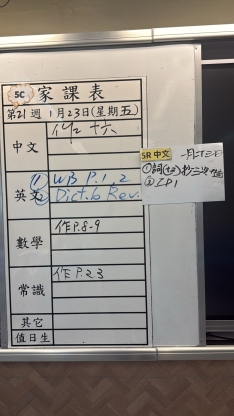 5C 家課表
第21週 1月23日(星期五)
中文 作乙十六
英文 ① WB P.1,2
② Dict.6 Rev.
數學 作P.8-9
常識 作P.23
其它
值日生
5R 中文 一月二十三日
①詞(十三)抄三次